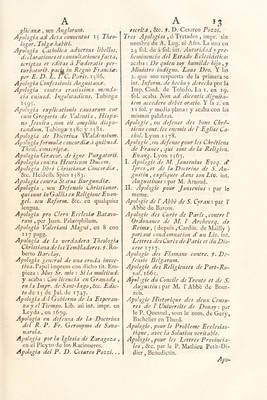 A
glicanæ, ven Anglorum.
Apología ad Acta comentus 15 Theologor. Tolsæ habiti.
Apología Catholica adversus libellos, declarationes et consultationes factas,
scriptas et editas à Fœderatis perturbatorib. pacis in Regno Franciæ
per E. D. L. I. C. Paris. 1586.
Apología Confessionis Augustanæ.
Apología contra cruaissima mendacia
1595.
Apología explicationis causarum cur
cum Gregorio de Valentia, Hispano
Jesuita, non sit amplius disputandum. Tubingæ 1580 y 1581.
Apología de Doctrina Waldensium.
Apología formulæ concordiæ à quibusd.
Theol. conscriptæ.
Apología Græcor. de igne Purgatorii.
Apología contra Henricum Ducem.
Apología libri Christianæ Concordiæ
&c. Heidelb. Spies 1583.
Apología contra Litteras Burgundiæ.
Apología, seu Defensio Christianar.
quas vocat Gallia &c. Religione Evangel. seu Reform. &c. en qualquier
lengua.
Apología pro Clero Ecclesiæ Batavorum, por Joan. Palæophilum.
Apología Valeriani Magni, en 8 con
127 pagg.
Apología de la verdadera Theología
Christiana de los Trembladores. P. Roberto Barclay.
Apología general de una oveja inocente.
à 15 de Jul. de 1747.
Apología del Gobierno de la Esperanza y el Tiempo. Lib. así int. impr. en
Leyda, en 1659.
Apología en defensa de la Doctrina
del R. P. Fr. Geronymo de Savonarola.
Apología por la Iglesia de Zaragoza,
en el Pleyto de los Racioneros.
Apología del P. D. Cesareo Pozzi.
A 13
escrita, &c. P. D. Cesareo Pozzi.
Tres Apologías, ó Tratados, impr. sin
nombre de A. Lug. ni Año. La una en
24 fol. de á fol. int. Autoridad y preheminencia del Estado Eclesiástico
acaba: De quien soy humilde hijo, y
Ministro indigno. Laus Deo. La
2. que son respuesta de la primera se
int. Inform. de hecho y derecho por la
Imp. Cond. de Toledo. La 1. en 19.
fol. acaba Non ad deteriora disputantem accedere debet oratio. Y la 2. en
12 fol. y media plana: y acaba con las
mismas palabras.
Apologie, ou défense des bons Chrétiens cont. les enemis de l'Eglise Cathol. Lyon 1578.
Apologie, ou défense pour les Chrétiens
de France, qui sont de la Religion.
Evang. Lyon 1563.
Apologie de M. Jansenius Evêq. d'
Ipres, et de la Doctrine de S. Augustin, expliquée dans son Liv. int.
Augustinus: par M. Jansenius.
II. Apologie pour Jansenius: par la
misme.
Apologie de l'Abbé de S. Cyran: par l'
Abbé de Barcos.
Apologie des Curés de Paris, contre l'
Ordonance de M. l'Archevesq. de
Reims, (depuis, Cardin. de Mailly)
portant condamnation d'un Ed. int.
Lettres des Curés de Paris et du Diocese 1717.
Apologie des Flamans contre. 3. Décret. Bulgarum.
Apologie des Religieuses de Port-Royal. 1665.
Apologie du Concile de Trente et de S.
Augustin: par M. l'Abbé de Bourzeis.
Apologie Historique des deux Censures de l'Université de Douay: par
le P. Quesnel, sous le nom. de Gery,
Bachelier en Theol.
Apologie, pour le Probleme Ecclesiastique, avec la Solution veritable.
Apologie, pour les Lettres Provinciales, &c. par le P. Mathieu Petit-Didier, Benedictin.
Apo-